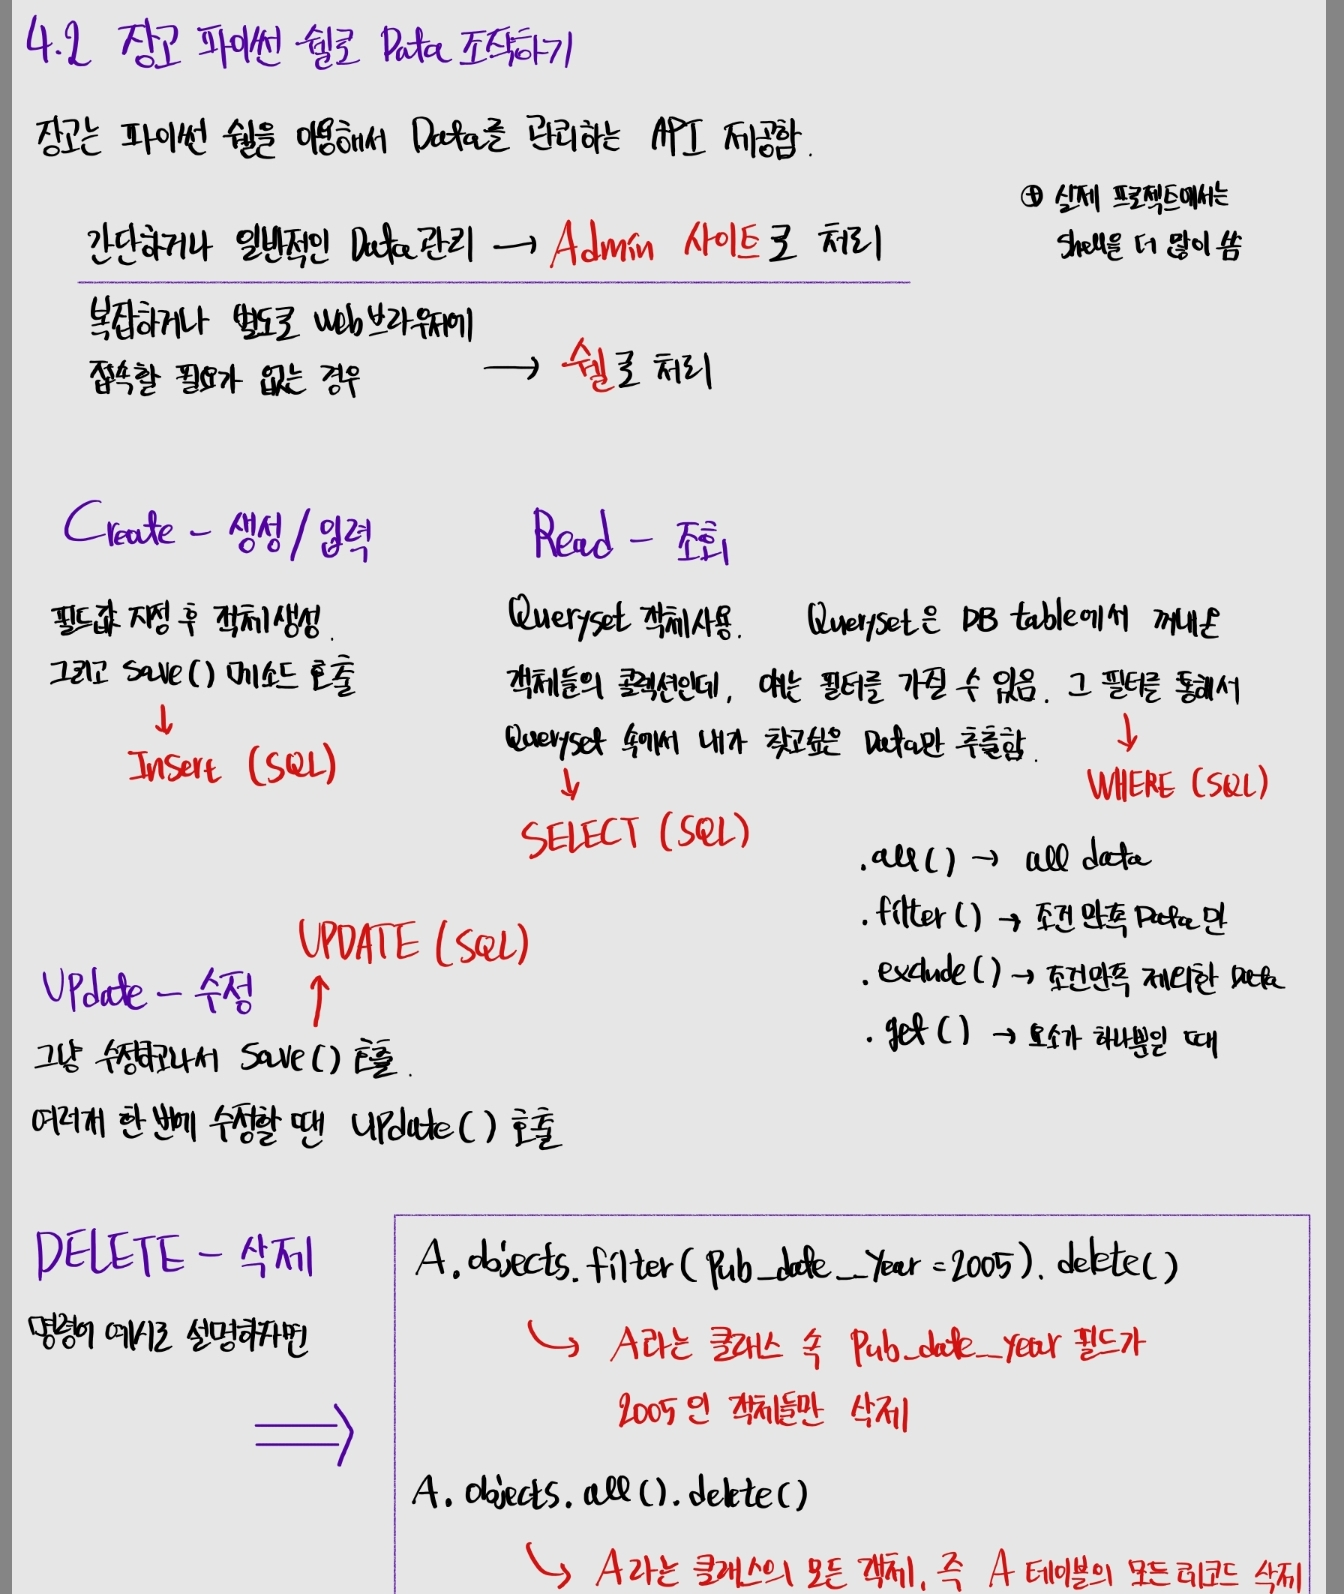 4.2 장고 파이썬 쉘로 Data 조작하기
장고는 파이썬 쉘을 이용해서 Data를 관리하는 API 제공함.
⊕ 실제 프로젝트에서는
Shell을 더 많이 씀
간단하거나 일반적인 Data 관리 → Admin 사이트로 처리
복잡하거나 별도로 Web브라우저에
접속할 필요가 없는 경우 → 쉘로 처리
Create - 생성/입력
필드값 지정 후 객체생성.
그리고 save() 메소드 호출
↓
Insert (SQL)
Read - 조회
Queryset 객체사용. Queryset은 DB table에서 꺼내온
객체들의 콜렉션인데, 얘는 필터를 가질 수 있음. 그 필터를 통해서
Queryset 속에서 내가 찾고싶은 Data만 추출함.
↓
WHERE (SQL)
↓
SELECT (SQL)
.all() → all data
.filter() → 조건 만족 Data 만
.exclude() → 조건만족 제외한 Data
.get() → 요소가 하나뿐일 때
UPDATE (SQL)
↑
Update - 수정
그냥 수정하고나서 Save() 호출.
여러개 한 번에 수정할 땐 update() 호출
DELETE - 삭제
명령어 예시로 설명하자면
⇒
A.objects.filter(Pub_date__Year=2005).delete()
↳ A라는 클래스 속 Pub_date__year 필드가
2005 인 객체들만 삭제
A.objects.all().delete()
↳ A라는 클래스의 모든 객체, 즉 A 테이블의 모든 레코드 삭제